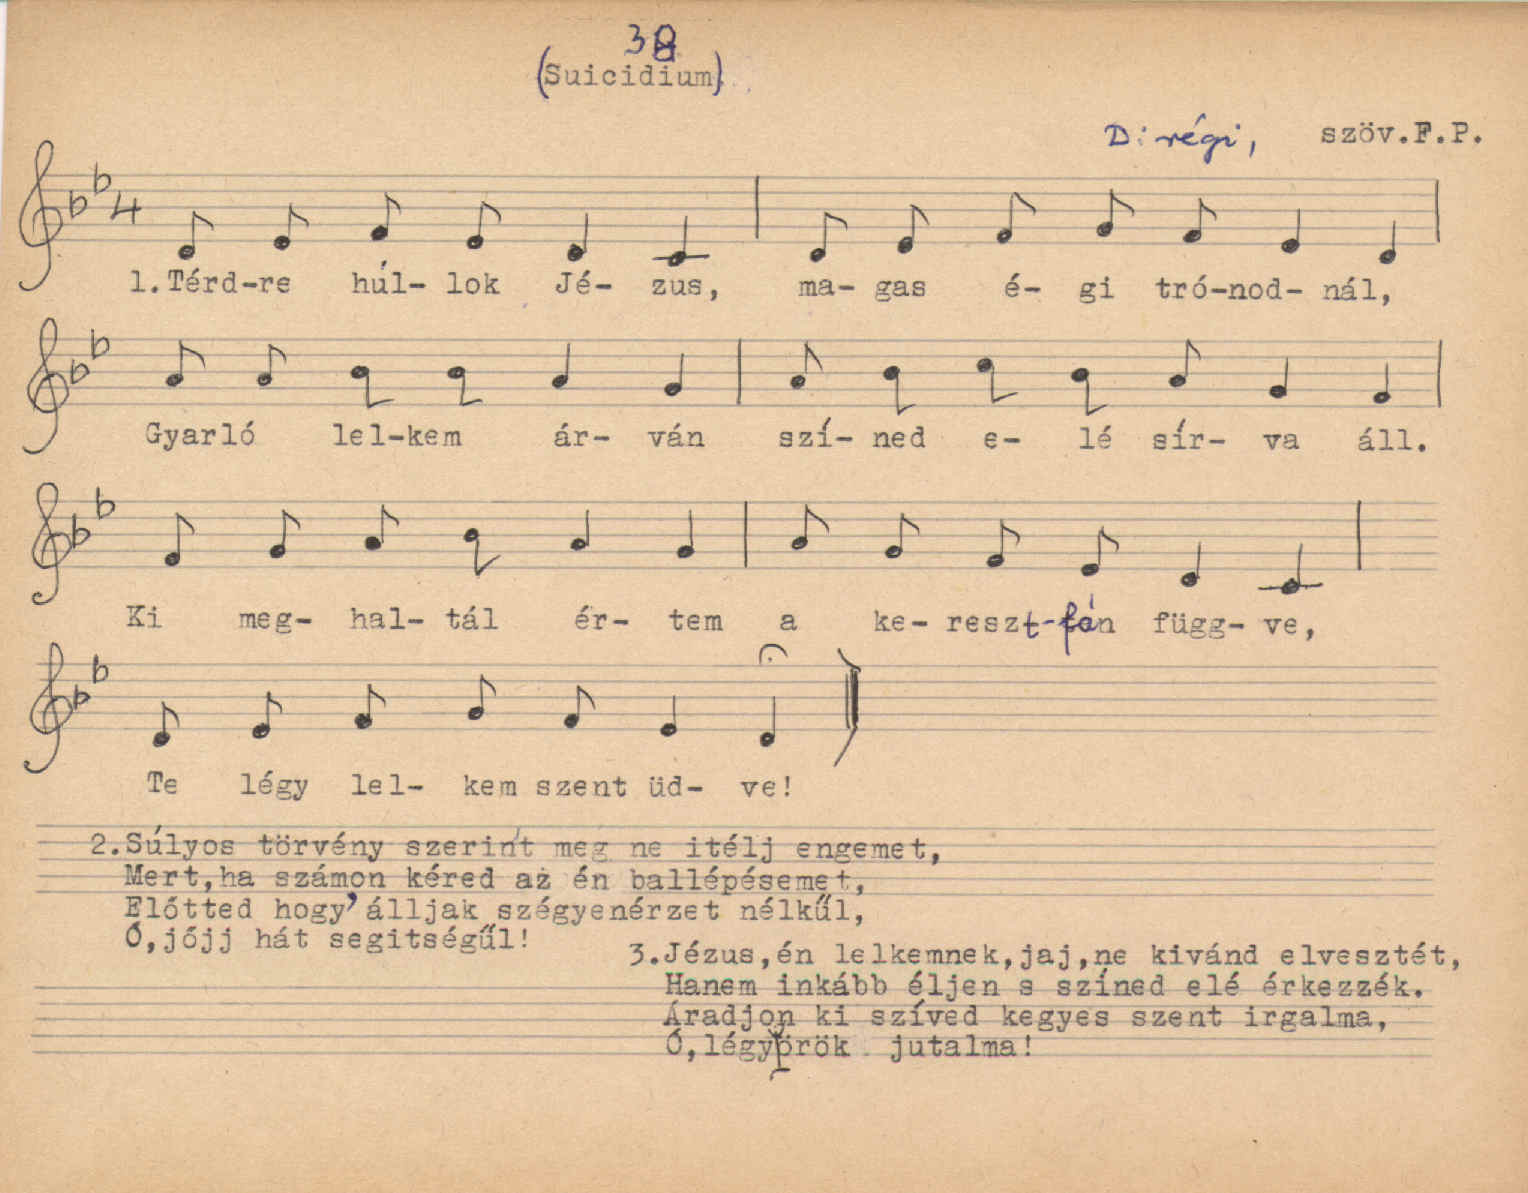 38
(Suicidium)
D: régi, szöv.F.P.
4
1.Térd-re húl- lok Jé- zus, ma- gas é- gi tró-nod- nál,
Gyarló lel-kem ár- ván szí- ned e- lé sír- va áll.
Ki meg- hal- tál ér- tem a ke- reszt-fán függ- ve,
Te légy lel- kem szent üd- ve!
2.Súlyos törvény szerint meg ne itélj engemet,
Mert,ha számon kéred az én ballépésemet,
Előtted hogy' álljak szégyenérzet nélkűl,
Ó,jőjj hát segitségűl!
3.Jézus,én lelkemnek,jaj,ne kivánd elvesztét,
Hanem inkább éljen s színed elé érkezzék.
Áradjon ki szíved kegyes szent irgalma,
Ó,légy örök jutalma!